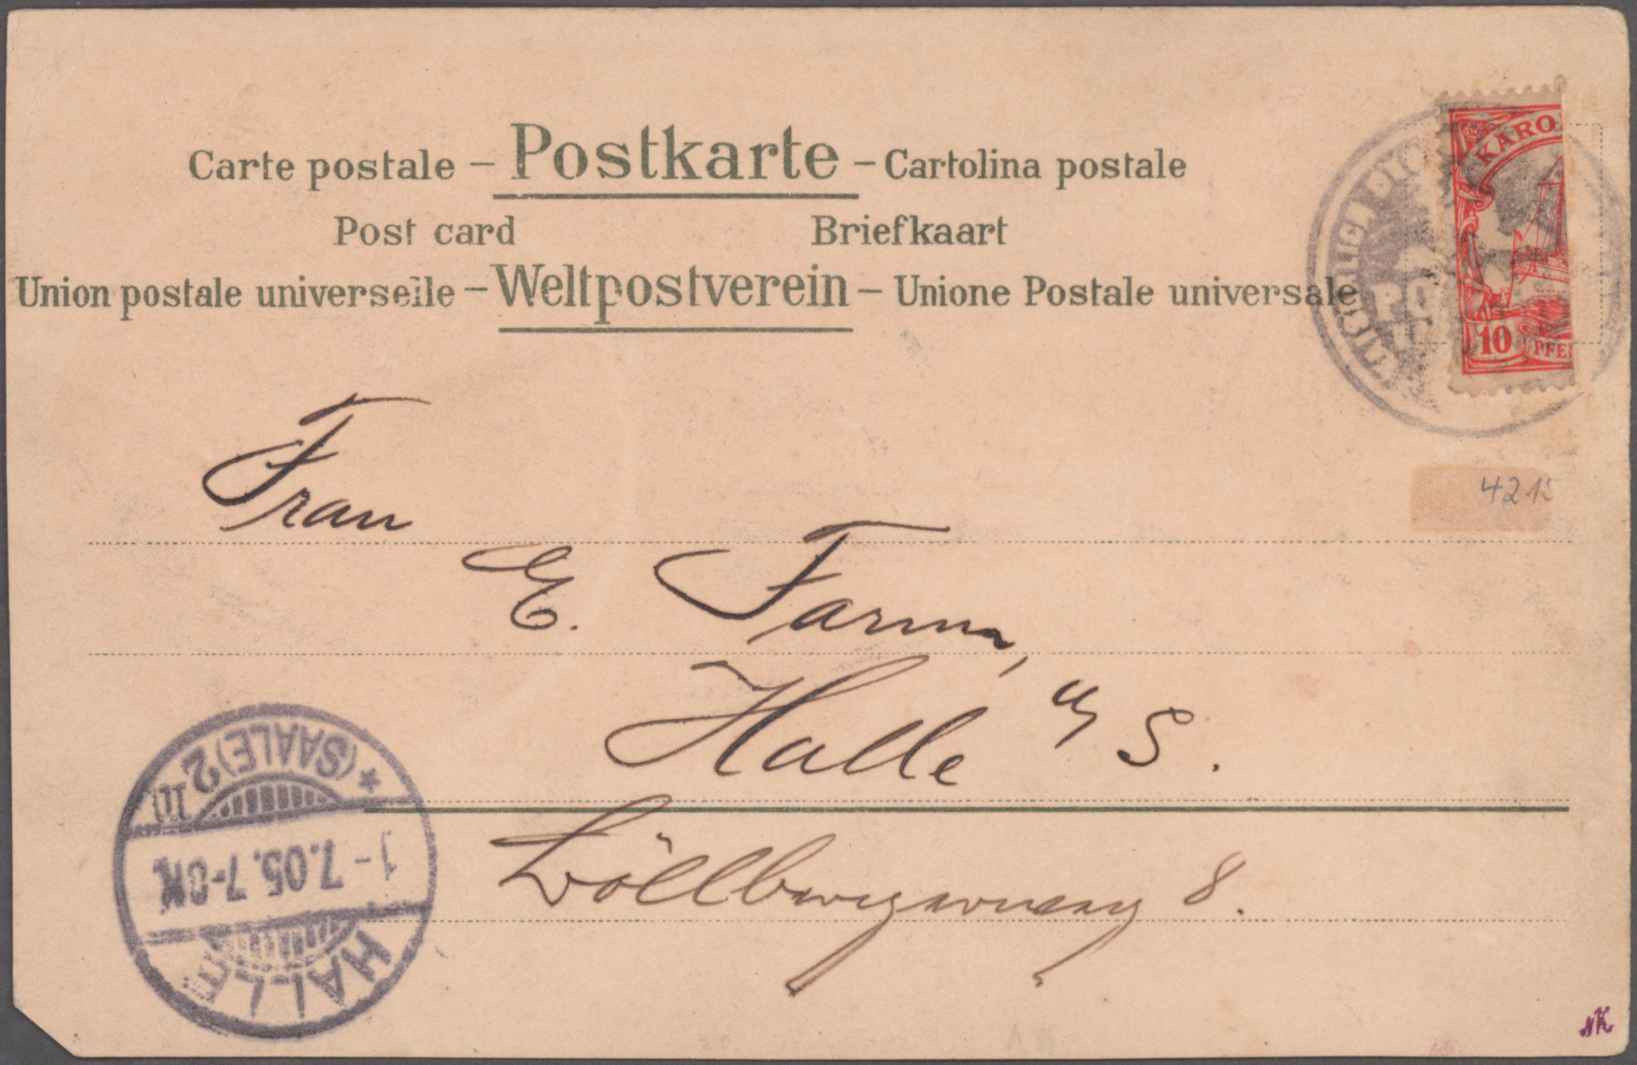 Carte postale – Postkarte – Cartolina postale
Post card Briefkaart
Union postale universelle – Weltpostverein – Unione Postale universale
KARO
10 PFE
4215
Frau
E. Farm,
Halle a/ S.
Böllbergerweg 8.
* (SAALE) 2 III
1-7.05.7-8N.
HALLE
NK